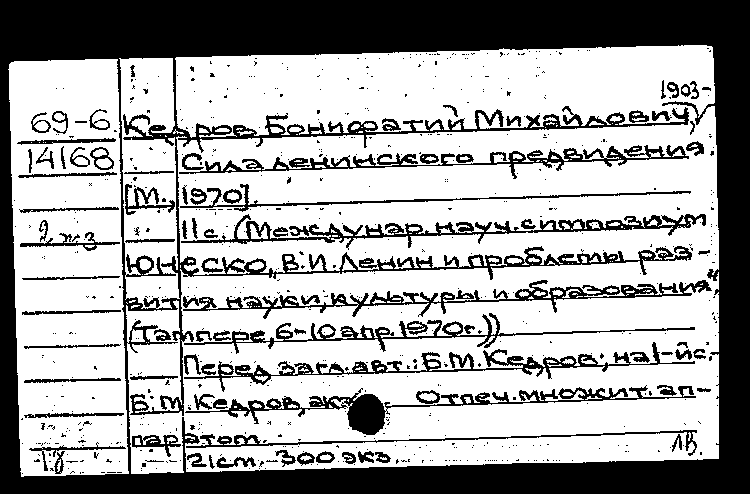 1903-
69-6 Кедров, Бонифатий Михайлович,
14168 Сила ленинского предвидения.
[М., 1970].
2 экз 11с. (Междунар. науч. симпозиум
ЮНЕСКО „В.И. Ленин и проблемы раз-
вития науки, культуры и образования",
(Тампере, 6-10 апр. 1970г.))
Перед загл. авт.: Б.М. Кедров; на 1-й с.-
Б.М. Кедров, Отпеч. множит. ап-
паратом.
21см. 300 экз. ЛВ.